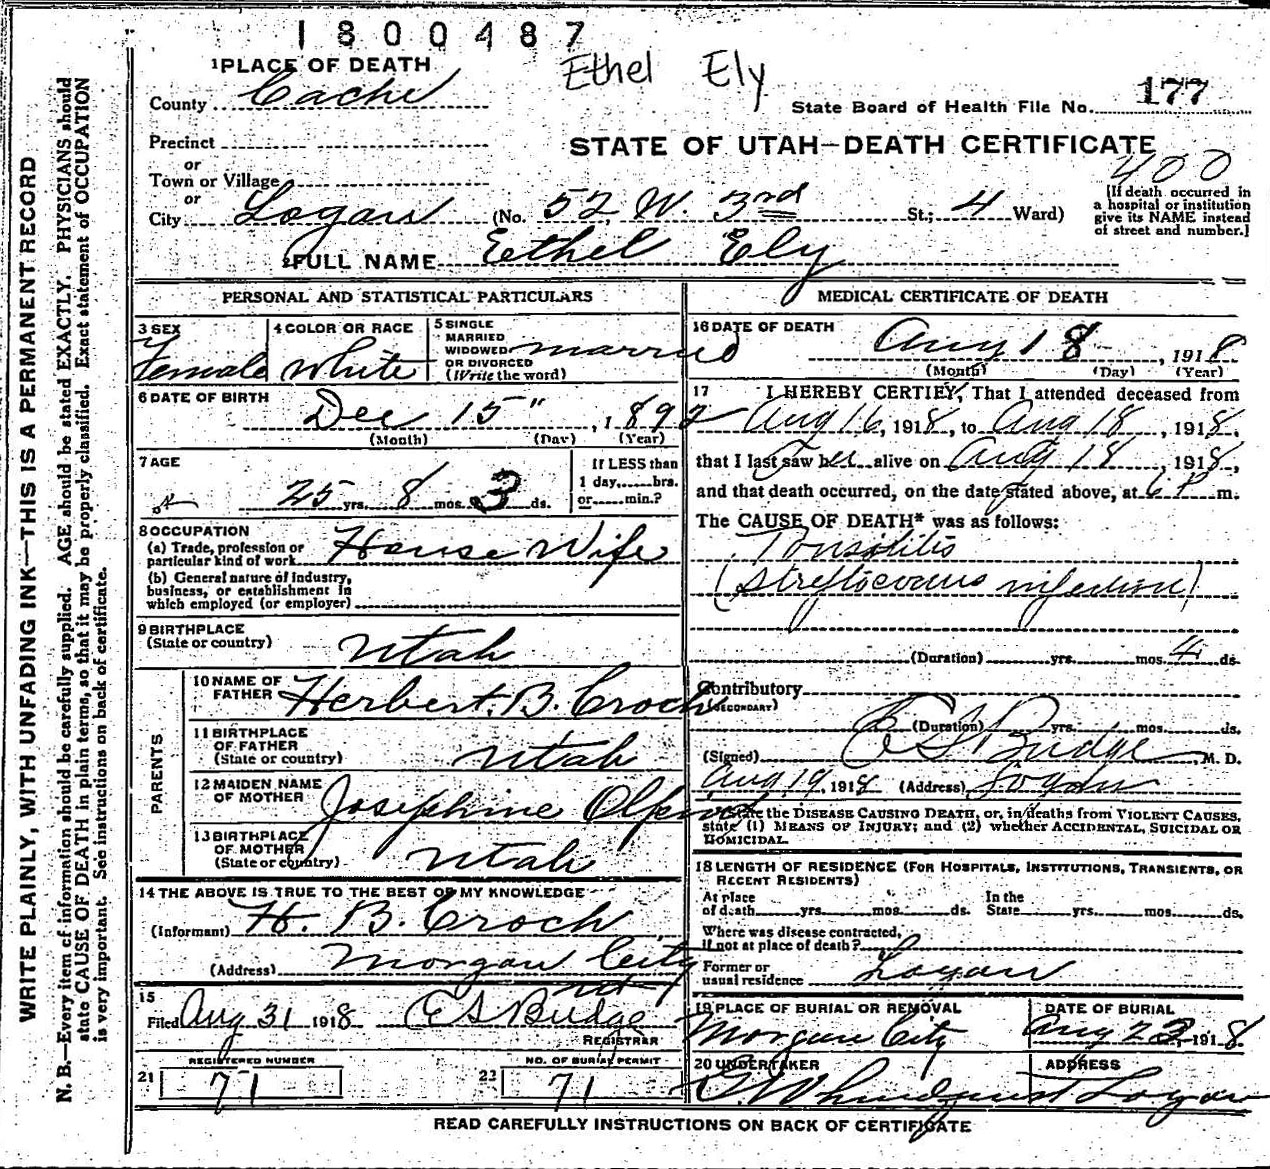 1800487
Ethel Ely
1 PLACE OF DEATH
County Cache
State Board of Health File No. 177
Precinct
or
STATE OF UTAH—DEATH CERTIFICATE
400
Town or Village
or
City Logan (No. 52 W. 3rd St.; 4 Ward)
[If death occurred in
a hospital or institution
give its NAME instead
of street and number.]
2 FULL NAME Eethel Ely
PERSONAL AND STATISTICAL PARTICULARS
3 SEX
Female
4 COLOR OR RACE
White
5 SINGLE
MARRIED
WIDOWED
OR DIVORCED
(Write the word)
married
6 DATE OF BIRTH
Dec 15", 1892
(Month) (Day) (Year)
7 AGE
25 yrs. 8 mos. 3 ds.
If LESS than
1 day,......hrs.
or......min.?
8 OCCUPATION
(a) Trade, profession or
particular kind of work House Wife
(b) General nature of industry,
business, or establishment in
which employed (or employer)
9 BIRTHPLACE
(State or country)
Utah
PARENTS
10 NAME OF
FATHER Herbert. B. Croch
11 BIRTHPLACE
OF FATHER
(State or country)
Utah
12 MAIDEN NAME
OF MOTHER Josephine
13 BIRTHPLACE
OF MOTHER
(State or country)
Utah
14 THE ABOVE IS TRUE TO THE BEST OF MY KNOWLEDGE
(Informant) H. B. Croch
(Address) Morgan City
Ut
15
Filed Aug 31 1918 E S Budge
REGISTRAR
REGISTERED NUMBER
21 71
NO. OF BURIAL PERMIT
22 71
MEDICAL CERTIFICATE OF DEATH
16 DATE OF DEATH
Aug 18, 1918
(Month) (Day) (Year)
17 I HEREBY CERTIFY, That I attended deceased from
Aug 16, 1918, to Aug 18, 1918,
that I last saw her alive on Aug 18, 1918,
and that death occurred, on the date stated above, at 6 P m.
The CAUSE OF DEATH* was as follows:
Tonsolitis
(Streptococcus infection)
(Duration) yrs. mos. 4 ds.
Contributory
(SECONDARY)
(Duration) yrs. mos. ds.
(Signed) E S Budge, M. D.
Aug 19, 1918 (Address) Logan
*State the DISEASE CAUSING DEATH, or, in deaths from VIOLENT CAUSES,
state (1) MEANS OF INJURY; and (2) whether ACCIDENTAL, SUICIDAL OR
HOMICIDAL.
18 LENGTH OF RESIDENCE (FOR HOSPITALS, INSTITUTIONS, TRANSIENTS, OR
RECENT RESIDENTS)
At place
of death yrs. mos. ds.
In the
State yrs. mos. ds.
Where was disease contracted,
if not at place of death?
Former or
usual residence Logan
19 PLACE OF BURIAL OR REMOVAL
Morgan City
DATE OF BURIAL
Aug 23, 1918.
20 UNDERTAKER
ADDRESS
Logan
READ CAREFULLY INSTRUCTIONS ON BACK OF CERTIFICATE
WRITE PLAINLY, WITH UNFADING INK—THIS IS A PERMANENT RECORD
N. B.—Every item of information should be carefully supplied. AGE should be stated EXACTLY. PHYSICIANS should
state CAUSE OF DEATH in plain terms, so that it may be properly classified. Exact statement of OCCUPATION
is very important. See instructions on back of certificate.